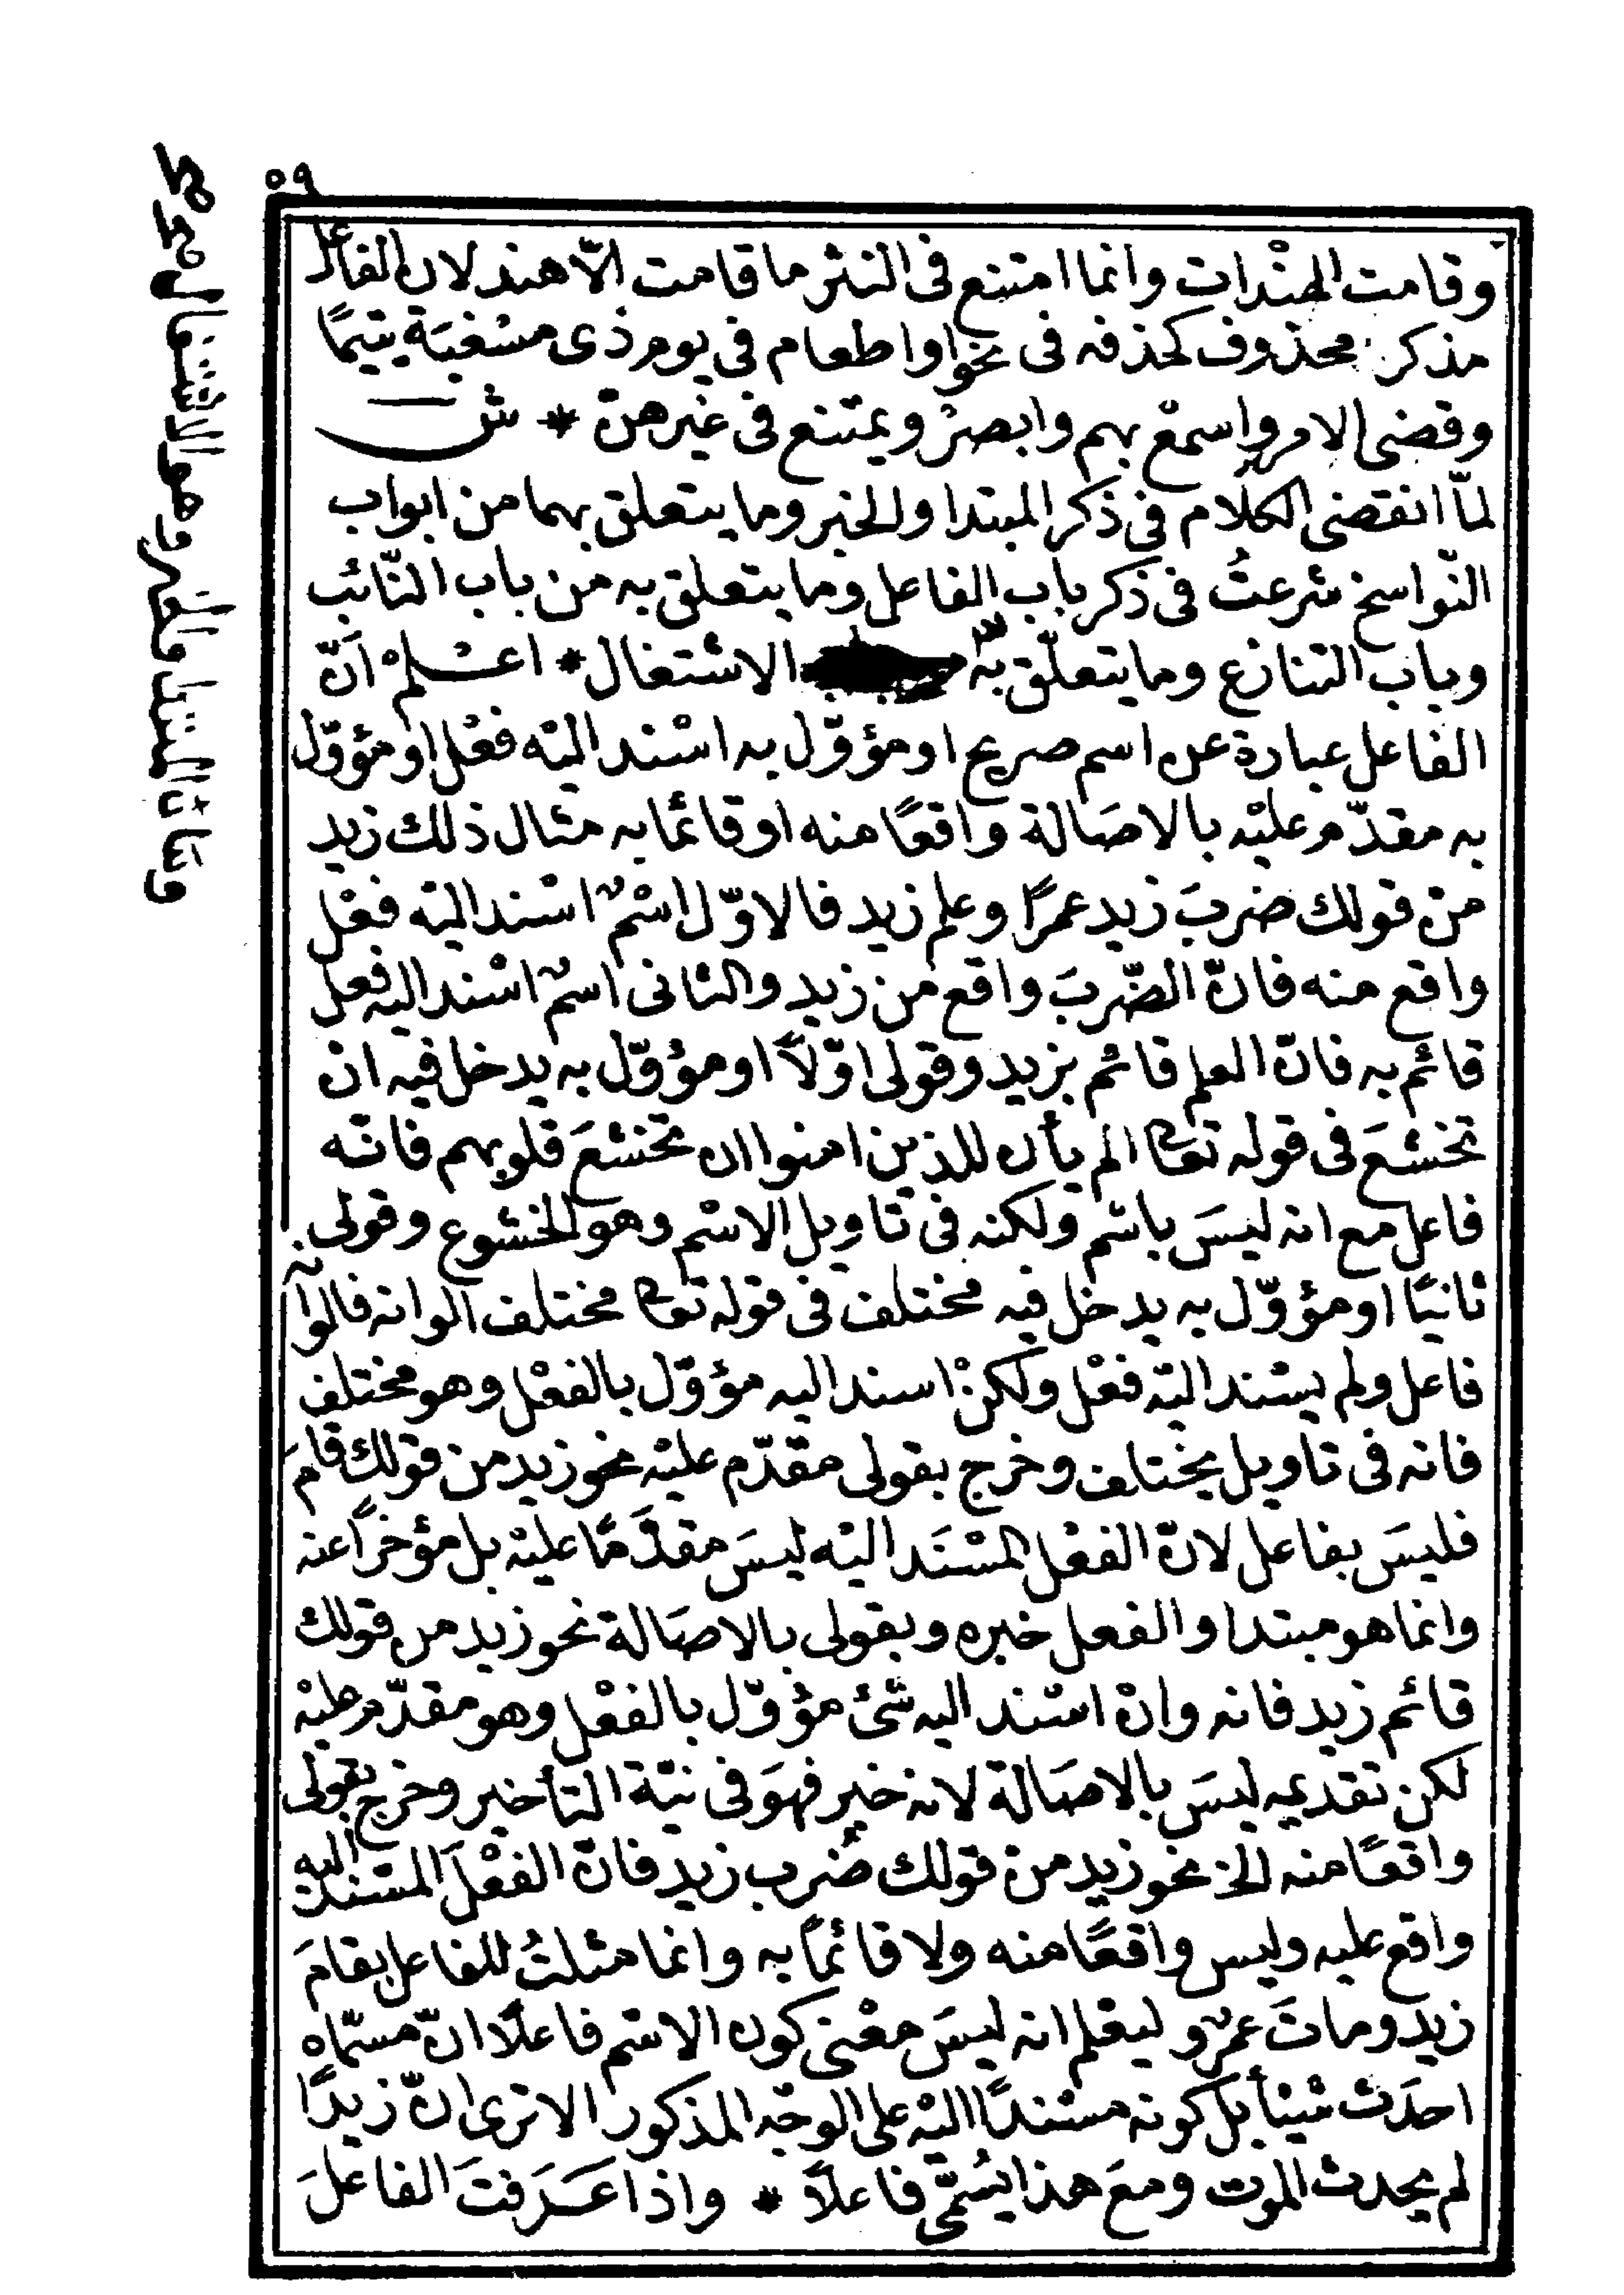 ٥٩
وقامت الهنْدات وانما امتنع فى النثر ما قامت الّا هند لان الفاعل
مذكر محذوف كحذفه فى نحو او اطعام في يوم ذى مسْغبَة يتيمًا
وقضى الامر واسمعْ بهم وابصرْ ويمتنع فى غيرهنّ * ش
لمّا انقضى الكلام فى ذكر المبتدا والخبر وما يتعلق بهما من ابواب
النّواسخ شرعتُ فى ذكر باب الفاعل وما يتعلق به من باب النّائب
وباب التنازع وما يتعلّق به من الاشتغال * اعْلمْ انّ
الفاعل عبارة عن اسم صريح او مؤوّل به اسْند اليْه فعْل او مؤوّل
به مقدّم عليْه بالاصَالة واقعًا منه او قائمًا به مثال ذلك زيد
منْ قولك ضربَ زيد عمرًا وعلم زيد فالاوّل اسْمٌ اسْند اليْه فعْل
واقع منه فانّ الضّربَ واقع من زيد والثانى اسمٌ اسْند اليه فعل
قائم به فانّ العلم قائم بزيد وقولى اوّلًا او مؤوّل به يدخل فيه ان
تخشعَ فى قوله تعا الم يأن للذين امنوا ان تخشعَ قلوبهم فانّه
فاعل مع انه ليسَ باسْم ولكنه فى تاويل الاسْم وهو الخشوع وقولى
ثانيًا او مؤوّل به يدخل فيه مختلف فى قوله تعا مختلف الوانه فالوانه
فاعل ولم يسْند اليْه فعْل ولكنْ اسند اليه مؤوّل بالفعْل وهو مختلف
فانه فى تاويل يختلف وخرج بقولى مقدّم عليْه نحو زيد من قولك زيد قامَ
فليسَ بفاعل لانّ الفعْل المسْنَد اليْه ليسَ مقدَّمًا عليْه بل مؤخرًا عنه
وانما هو مبتدا والفعل خبره وبقولى بالاصَالة نحو زيد من قولك
قائم زيد فانه وانْ اسْند اليه شئ مؤوّل بالفعْل وهو مقدّم عليْه
لكن تقديمه ليسَ بالاصَالة لانه خبر فهوَ فى نيّة التأخير وخرج بقولى
واقعًا منه الخ نحو زيد منْ قولك ضُرب زيد فانّ الفعْلَ المسْند اليه
واقع عليه وليس واقعًا منه ولا قائمًا به وانما مثلتُ للفاعل بقامَ
زيد ومات عمرٌو ليعْلم انه ليسَ معْنى كون الاسْم فاعلًا انّ مسمّاه
احدَث شيئا بل كونه مسْندًا اليْه على الوجْه المذكور الا ترى انّ زيدًا
لم يحدث الموت ومعَ هذا يُسمّى فاعلًا * واذا عَرَفتَ الفاعلَ
وباب المبتدا والخبر وهو الاشتغال